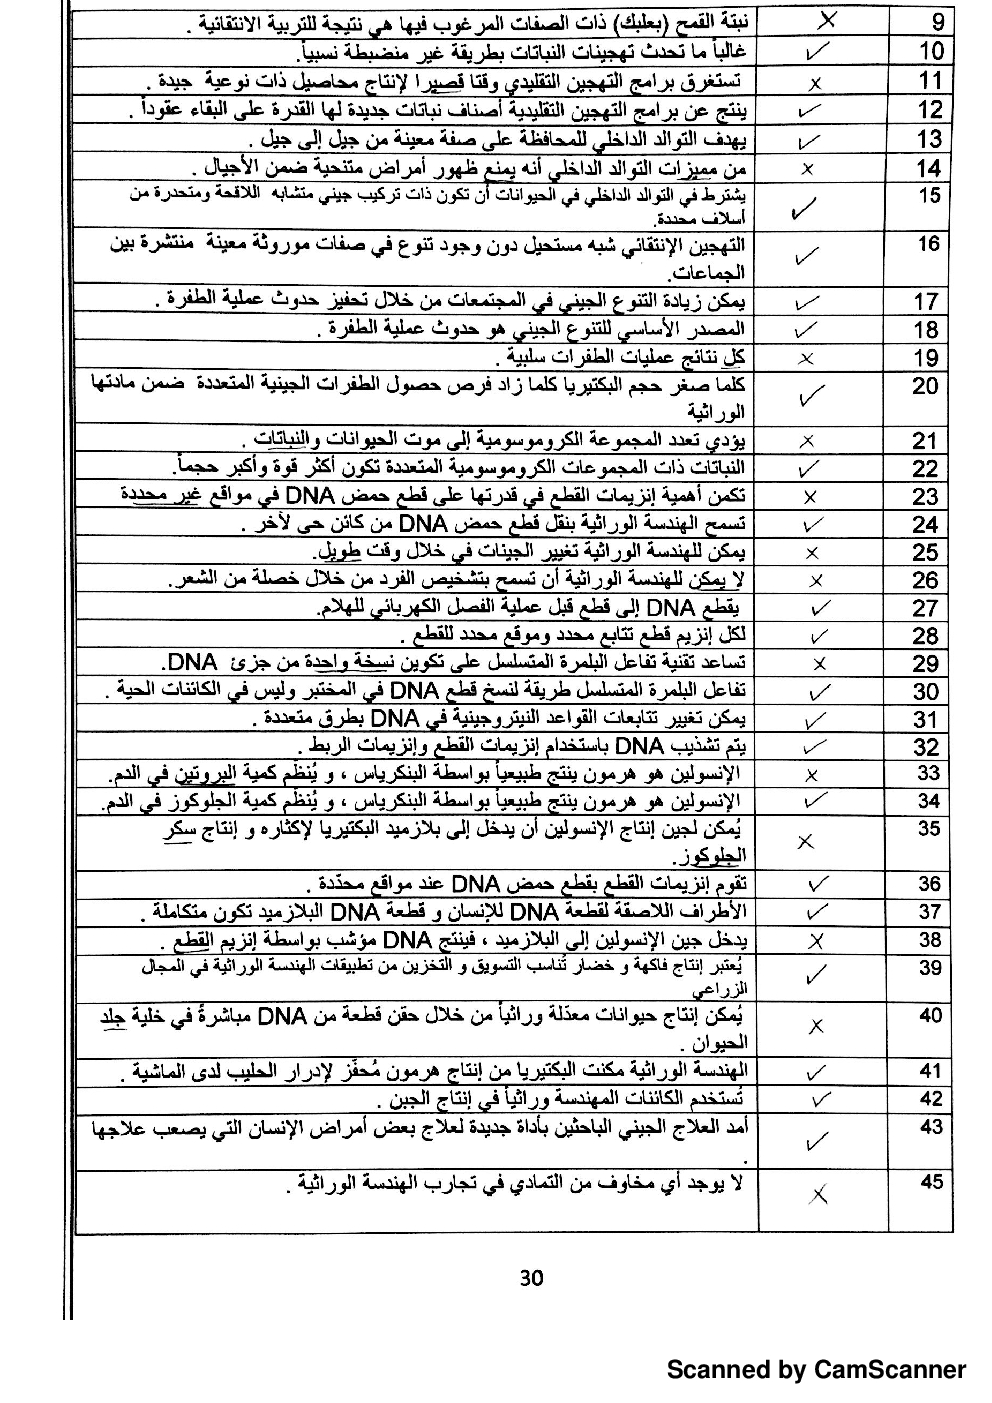 9 × نبتة القمح (بعلبك) ذات الصفات المرغوب فيها هي نتيجة للتربية الانتقائية .
10 ✓ غالباً ما تحدث تهجينات النباتات بطريقة غير منضبطة نسبياً.
11 × تستغرق برامج التهجين التقليدي وقتا قصيرا لإنتاج محاصيل ذات نوعية جيدة .
12 ✓ ينتج عن برامج التهجين التقليدية أصناف نباتات جديدة لها القدرة على البقاء عقوداً .
13 ✓ يهدف التوالد الداخلي للمحافظة على صفة معينة من جيل إلى جيل .
14 × من مميزات التوالد الداخلي أنه يمنع ظهور أمراض متنحية ضمن الأجيال .
15 ✓ يشترط في التوالد الداخلي في الحيوانات أن تكون ذات تركيب جيني متشابه اللاقحة ومتحدرة من
أسلاف محددة.
16 ✓ التهجين الإنتقائي شبه مستحيل دون وجود تنوع في صفات موروثة معينة منتشرة بين
الجماعات.
17 ✓ يمكن زيادة التنوع الجيني في المجتمعات من خلال تحفيز حدوث عملية الطفرة .
18 ✓ المصدر الأساسي للتنوع الجيني هو حدوث عملية الطفرة .
19 × كل نتائج عمليات الطفرات سلبية .
20 ✓ كلما صغر حجم البكتيريا كلما زاد فرص حصول الطفرات الجينية المتعددة ضمن مادتها
الوراثية
21 × يؤدي تعدد المجموعة الكروموسومية إلى موت الحيوانات والنباتات .
22 ✓ النباتات ذات المجموعات الكروموسومية المتعددة تكون أكثر قوة وأكبر حجماً.
23 × تكمن أهمية إنزيمات القطع في قدرتها على قطع حمض DNA في مواقع غير محددة
24 ✓ تسمح الهندسة الوراثية بنقل قطع حمض DNA من كائن حى لآخر .
25 × يمكن للهندسة الوراثية تغيير الجينات في خلال وقت طويل.
26 × لا يمكن للهندسة الوراثية أن تسمح بتشخيص الفرد من خلال خصلة من الشعر.
27 ✓ يقطع DNA إلى قطع قبل عملية الفصل الكهربائي للهلام.
28 ✓ لكل إنزيم قطع تتابع محدد وموقع محدد للقطع .
29 × تساعد تقنية تفاعل البلمرة المتسلسل على تكوين نسخة واحدة من جزئ DNA.
30 ✓ تفاعل البلمرة المتسلسل طريقة لنسخ قطع DNA في المختبر وليس في الكائنات الحية .
31 ✓ يمكن تغيير تتابعات القواعد النيتروجينية في DNA بطرق متعددة .
32 ✓ يتم تشذيب DNA باستخدام إنزيمات القطع وإنزيمات الربط .
33 × الإنسولين هو هرمون ينتج طبيعياً بواسطة البنكرياس ، و يُنظّم كمية البروتين في الدم.
34 ✓ الإنسولين هو هرمون ينتج طبيعياً بواسطة البنكرياس ، و يُنظّم كمية الجلوكوز في الدم.
35 × يُمكن لجين إنتاج الإنسولين أن يدخل إلى بلازميد البكتيريا لإكثاره و إنتاج سكر
الجلوكوز.
36 ✓ تقوم إنزيمات القطع بقطع حمض DNA عند مواقع محدّدة .
37 ✓ الأطراف اللاصقة لقطعة DNA للإنسان و قطعة DNA البلازميد تكون متكاملة .
38 × يدخل جين الإنسولين إلى البلازميد ، فينتج DNA مؤشب بواسطة إنزيم القطع .
39 ✓ يُعتبر إنتاج فاكهة و خضار تُناسب التسويق و التخزين من تطبيقات الهندسة الوراثية في المجال
الزراعي
40 × يُمكن إنتاج حيوانات معدّلة وراثياً من خلال حقن قطعة من DNA مباشرةً في خلية جلد
الحيوان .
41 ✓ الهندسة الوراثية مكنت البكتيريا من إنتاج هرمون مُحفّز لإدرار الحليب لدى الماشية .
42 ✓ تُستخدم الكائنات المهندسة وراثياً في إنتاج الجبن .
43 ✓ أمد العلاج الجيني الباحثين بأداة جديدة لعلاج بعض أمراض الإنسان التي يصعب علاجها
.
45 × لا يوجد أي مخاوف من التمادي في تجارب الهندسة الوراثية .
30
Scanned by CamScanner